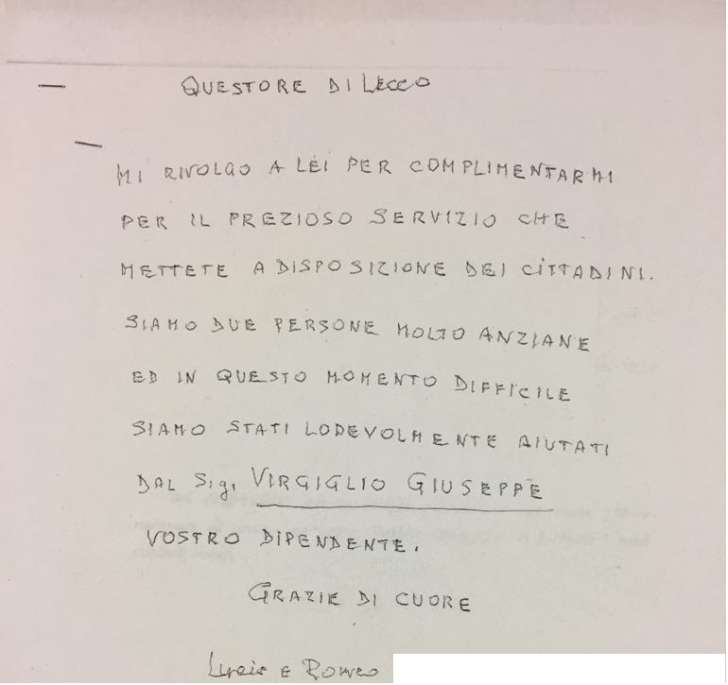 QUESTORE DI LECCO
MI RIVOLGO A LEI PER COMPLIMENTARMI
PER IL PREZIOSO SERVIZIO CHE
METTETE A DISPOSIZIONE DEI CITTADINI.
SIAMO DUE PERSONE MOLTO ANZIANE
ED IN QUESTO MOMENTO DIFFICILE
SIAMO STATI LODEVOLMENTE AIUTATI
DAL Sig. VIRGIGLIO GIUSEPPE
VOSTRO DIPENDENTE.
GRAZIE DI CUORE
E Romeo